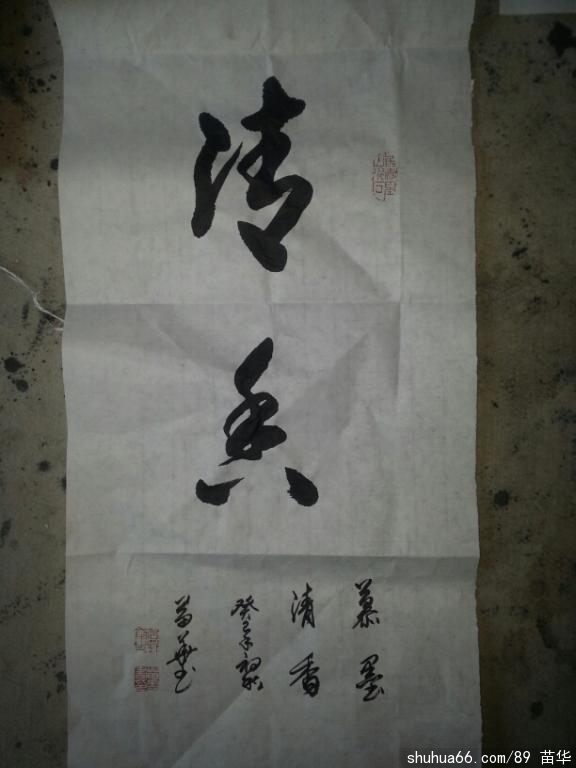 清
慕墨
清香
癸巳年初秋
苗華书
shuhua66.com/89 苗华